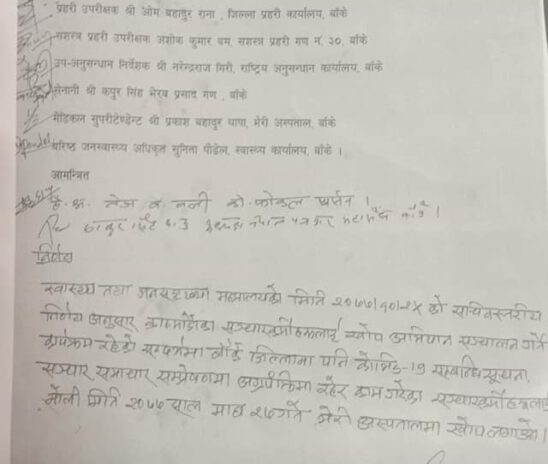 प्रहरी उपरीक्षक श्री ओम बहादुर राना, जिल्ला प्रहरी कार्यालय, बाँके
सशस्त्र प्रहरी उपरीक्षक अशोक कुमार बम, सशस्त्र प्रहरी गण नं. ३०, बाँके
उप-अनुसन्धान निर्देशक श्री नरेन्द्रराज गिरी, राष्ट्रिय अनुसन्धान कार्यालय, बाँके
सेनानी श्री कपुर सिंह भैरब प्रसाद गण, बाँके
मेडिकल सुपरीटेण्डेन्ट श्री प्रकाश बहादुर थापा, भेरी अस्पताल, बाँके
बरिष्ठ जनस्वास्थ्य अधिकृत सुनिता पौडेल, स्वास्थ्य कार्यालय, बाँके ।
आमन्त्रित
तेज व. वली को. फोकल पर्सन ।
ठाकुर सिंह अध्यक्ष नेपाल पत्रकार महासंघ बाँके ।
निर्णय
स्वास्थ्य तथा जनसंख्या मन्त्रालयको मिति २०७७।१०।२४ को सचिवस्तरीय
निर्णय अनुसार सञ्चारकर्मीहरूलाई खोप अभियान सञ्चालन गर्ने
कार्यक्रम रहेको सन्दर्भमा बाँके जिल्लामा पनि कोभिड-19 सम्बन्धि सूचना,
सञ्चार समाचार सम्प्रेषणमा अग्रपंक्तिमा रहेर काम गरेका सञ्चारकर्मीहरूलाई
भोली मिति २०७७ साल माघ २७ गते भेरी अस्पतालमा खोप लगाउने ।